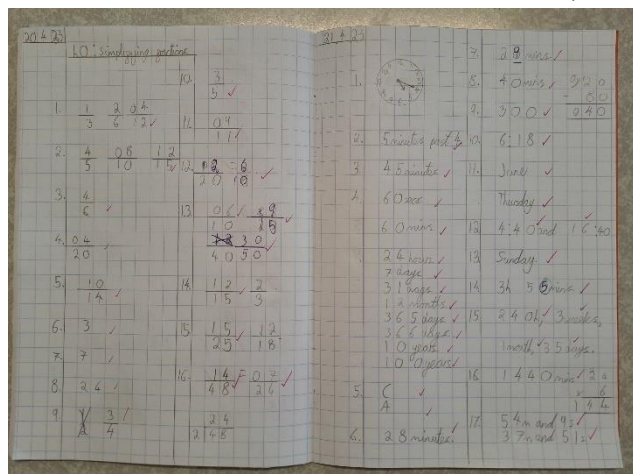 20.4.23
LO: simplifying
1. 1/3 2/6 04/12
2. 4/5 08/10 12/15
3. 4/6
4. 04/20
5. 10/14
6. 3
7. 7
8. 24
9. 3/4
10. 3/5
11. 04/11
12. 12/20 = 6/10
13. 06/10
30/50
40
14. 12/15 2/3
15. 15/25 12/18
16. 14/48 = 07/24
24
2 48
21.4.23
1.
2. 5 minutes past 4
3. 45 minutes
4. 60 sec
60 mins
24 hours
7 days
31 days
12 months
365 days
366 days
10 years
100 years
5. C
A
6. 28 minutes
7. 28 mins
8. 40 mins
040
9. 300
10. 6:18
11. June
Thursday
12. 4:40 and 16:40
13. Sunday
14. 3h 55mins
15. 240h, 3 weeks,
1 month, 35 days.
16. 1440 min 24
6
144
17. 54m and 9s
37m and 51s